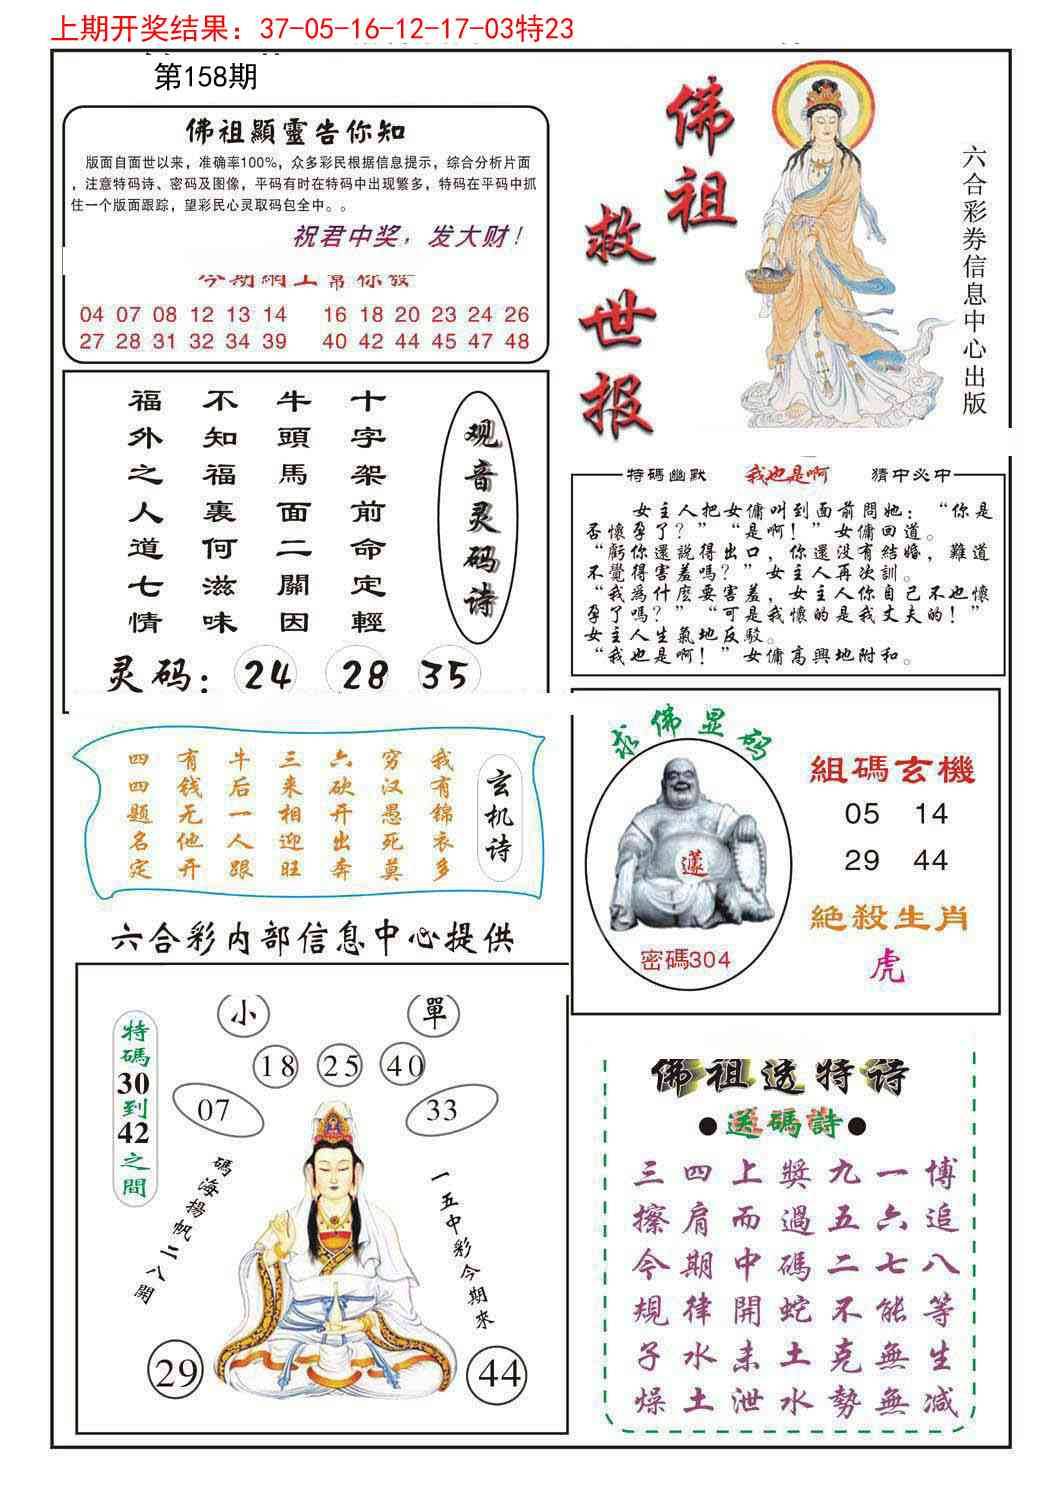 上期开奖结果：37-05-16-12-17-03特23
第158期
佛祖顯靈告你知
版面自面世以来，准确率100%，众多彩民根据信息提示，综合分析片面
，注意特码诗、密码及图像，平码有时在特码中出现繁多，特码在平码中抓
住一个版面跟踪，望彩民心灵取码包全中。。
祝君中奖，发大财！
04 07 08 12 13 14 16 18 20 23 24 26
27 28 31 32 34 39 40 42 44 45 47 48
佛祖
救世报
六合彩券信息中心出版
观音灵码诗
十字架前命定輕
牛頭馬面二關因
不知福裏何滋味
福外之人道七情
灵码：24 28 35
特碼幽默 我也是啊 猜中必中
女主人把女傭叫到面前問她：“你是
否懷孕了？”“是啊！”女傭回道。
“虧你還說得出口，你還没有結婚，難道
不覺得害羞嗎？”女主人再次訓。
“我為什麼要害羞，女主人你自己不也懷
孕了嗎？”“可是我懷的是我丈夫的！”
女主人生氣地反駁。
“我也是啊！”女傭高興地附和。
玄机诗
我有锦衣多
穷汉愚死莫
六砍开出奔
三来相迎旺
牛后一人跟
有钱无他开
四四题名定
六合彩内部信息中心提供
求佛显码
密碼304
組碼玄機
05 14
29 44
絕殺生肖
虎
特碼30到42之間
小 單
18 25 40
07 33
碼海揚帆二八開
一五中彩今期來
29 44
佛祖透特诗
●送碼詩●
三四上獎九一博
擦肩而過五六追
今期中碼二七八
規律開蛇不能等
子水未土克無生
燥土泄水勢無减